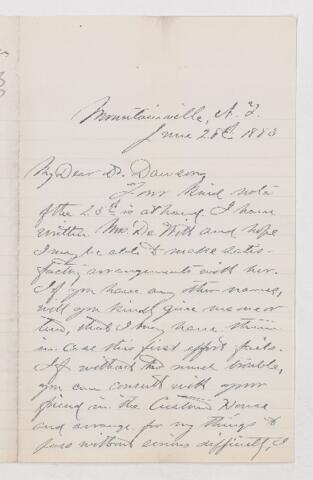 Mountainville, N.Y.
June 28th 1883
My Dear Dr. Dawson,
Your kind note
of the 25th is at hand. I have
written Mrs. De Witt and hope
I may be able to make satis-
factory arrangements with her.
If you have any other names,
will you kindly give me
that I may have them
in case this first effort fails.
If without too much trouble,
you can consult with your
friend in the Custom House
and arrange for my things to
pass without serious difficulty, I